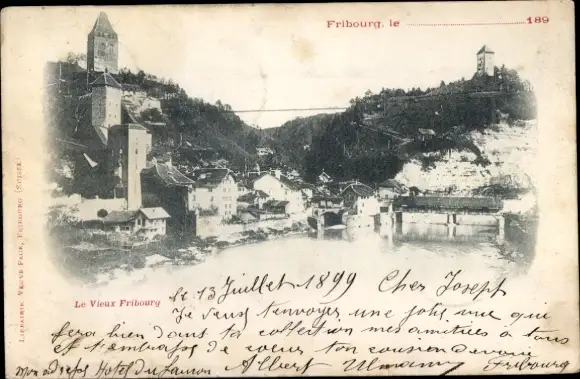 Fribourg, le 189
LIBRAIRIE VEUVE PALR, FRIBOURG (SUISSE)
Le Vieux Fribourg
le 13 Juillet 1899 Cher Joseph
Je viens t'envoyer une jolie vue qui
fera bien dans ta collection mes amitiés à tous
et t'embrasse de cœur ton cousin dévoué
Mon adresse Hotel du Albert Ulmann Fribourg